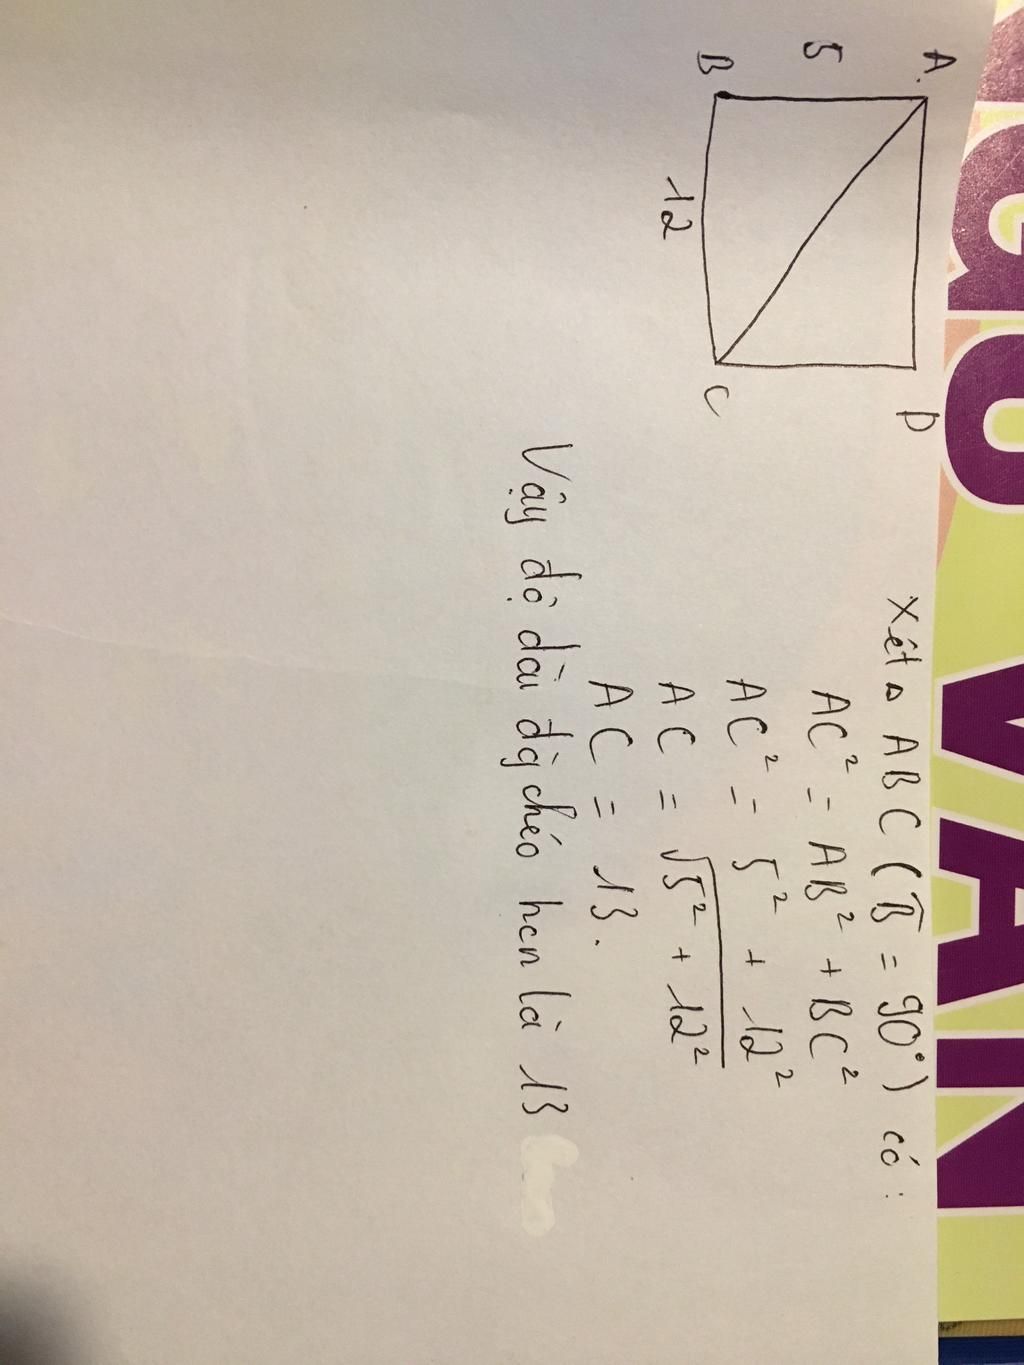 A
5
B
12
C
D
Xét △ ABC (B̂ = 90°) có:
AC² = AB² + BC²
AC² = 5² + 12²
AC = √5² + 12²
AC = 13.
Vậy độ dài đg chéo hcn là 13
VĂN